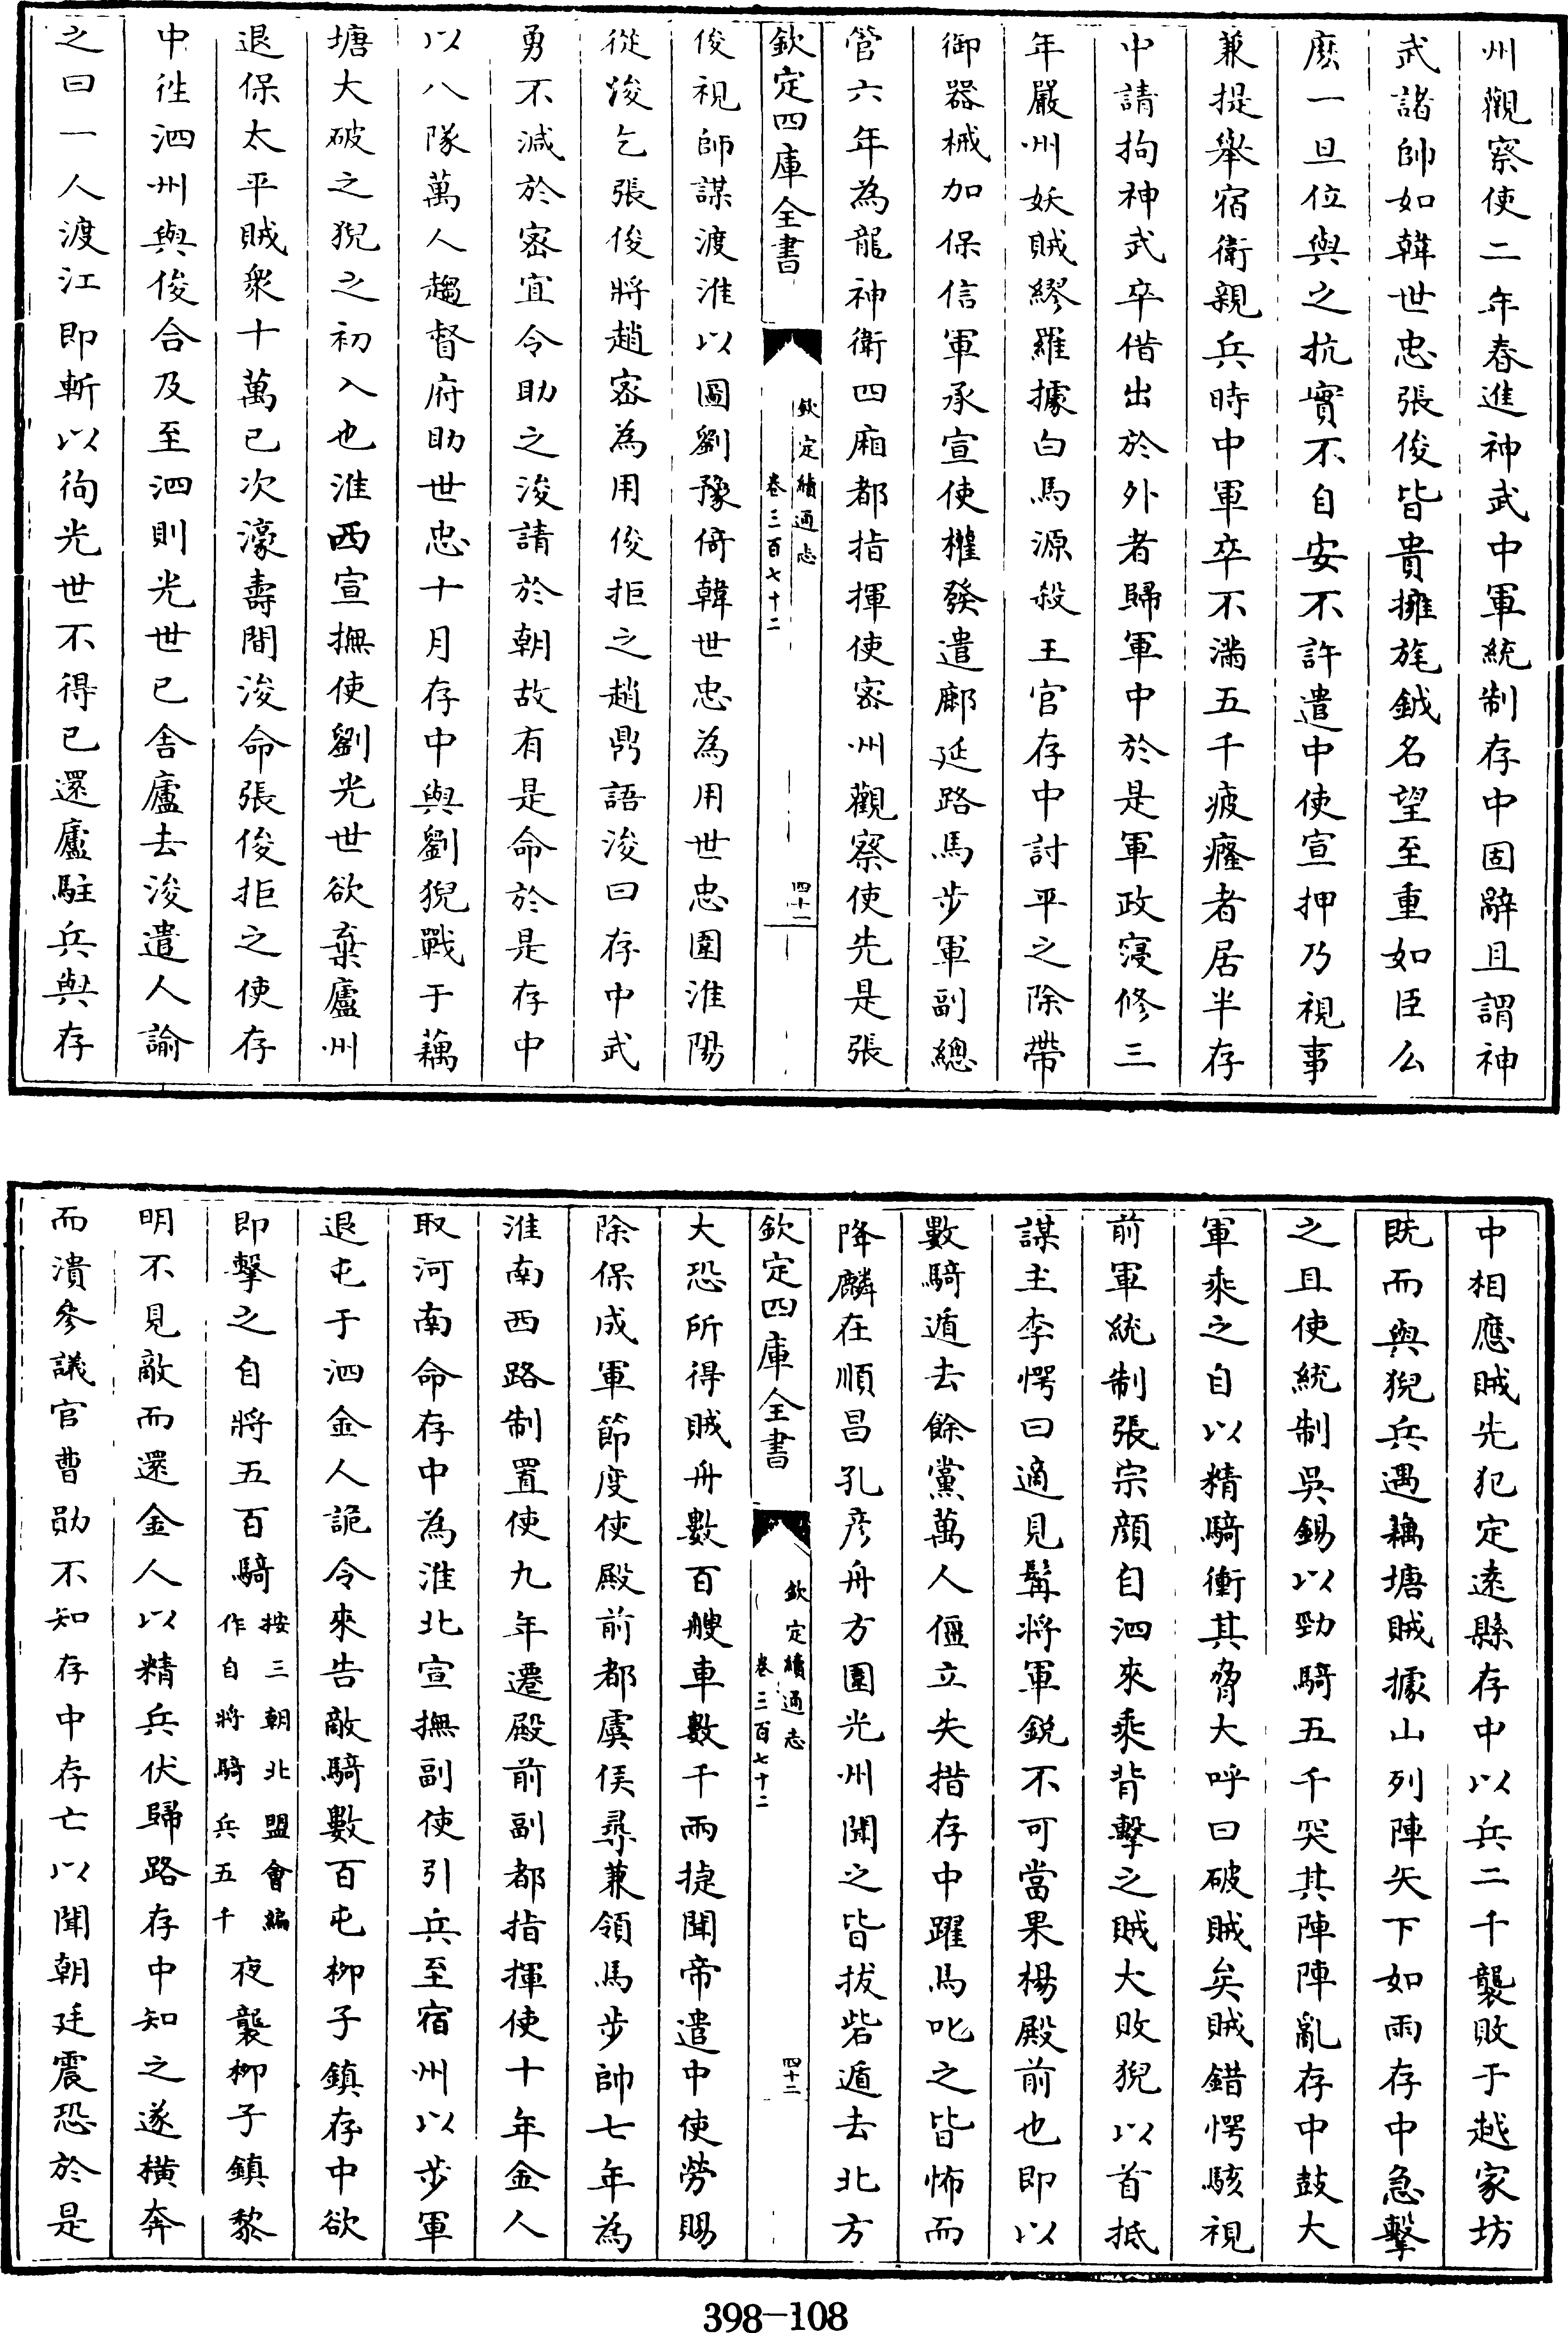 州觀察使二年春進神武中軍統制存中固辭且謂神
武諸帥如韓世忠張俊皆貴擁旄鉞名望至重如臣么
麽一旦位與之抗實不自安不許遣中使宣押乃視事
兼提舉宿衛親兵時中軍卒不滿五千疲癃者居半存
中請拘神武卒借出於外者歸軍中於是軍政寖修三
年嚴州妖賊繆羅據白馬源殺王官存中討平之除帶
御器械加保信軍承宣使權發遣鄜延路馬步軍副總
管六年為龍神衛四廂都指揮使宻州觀察使先是張
欽定四庫全書
欽定續通志
卷三百七十二
四十一
俊視師謀渡淮以圖劉豫倚韓世忠為用世忠圍淮陽
從浚乞張俊將趙宻為用俊拒之趙鼎語浚曰存中武
勇不減於宻宜令助之浚請於朝故有是命於是存中
以八隊萬人趨督府助世忠十月存中與劉猊戰于藕
塘大破之猊之初入也淮西宣撫使劉光世欲棄廬州
退保太平賊衆十萬已次濠壽間浚命張俊拒之使存
中徃泗州與俊合及至泗則光世已舍廬去浚遣人諭
之曰一人渡江即斬以徇光世不得已還廬駐兵與存
中相應賊先犯定遠縣存中以兵二千襲敗于越家坊
既而與猊兵遇藕塘賊據山列陣矢下如雨存中急擊
之且使統制吳錫以勁騎五千突其陣陣亂存中鼓大
軍乘之自以精騎衝其脅大呼曰破賊矣賊錯愕駭視
前軍統制張宗顔自泗來乘背擊之賊大敗猊以首抵
謀主李愕曰適見髯將軍鋭不可當果楊殿前也即以
數騎遁去餘黨萬人僵立失措存中躍馬叱之皆怖而
降麟在順昌孔彦舟方圍光州聞之皆拔砦遁去北方
欽定四庫全書
欽定續通志
卷三百七十二
四十二
大恐所得賊舟數百艘車數千兩捷聞帝遣中使勞賜
除保成軍節度使殿前都虞侯尋兼領馬步帥七年為
淮南西路制置使九年遷殿前副都指揮使十年金人
取河南命存中為淮北宣撫副使引兵至宿州以步軍
退屯于泗金人詭令來告敵騎數百屯柳子鎮存中欲
即擊之自將五百騎按三朝北盟會編作自將騎兵五千夜襲柳子鎮黎
明不見敵而還金人以精兵伏歸路存中知之遂橫奔
而潰參議官曹勛不知存中存亡以聞朝廷震恐於是
398-108